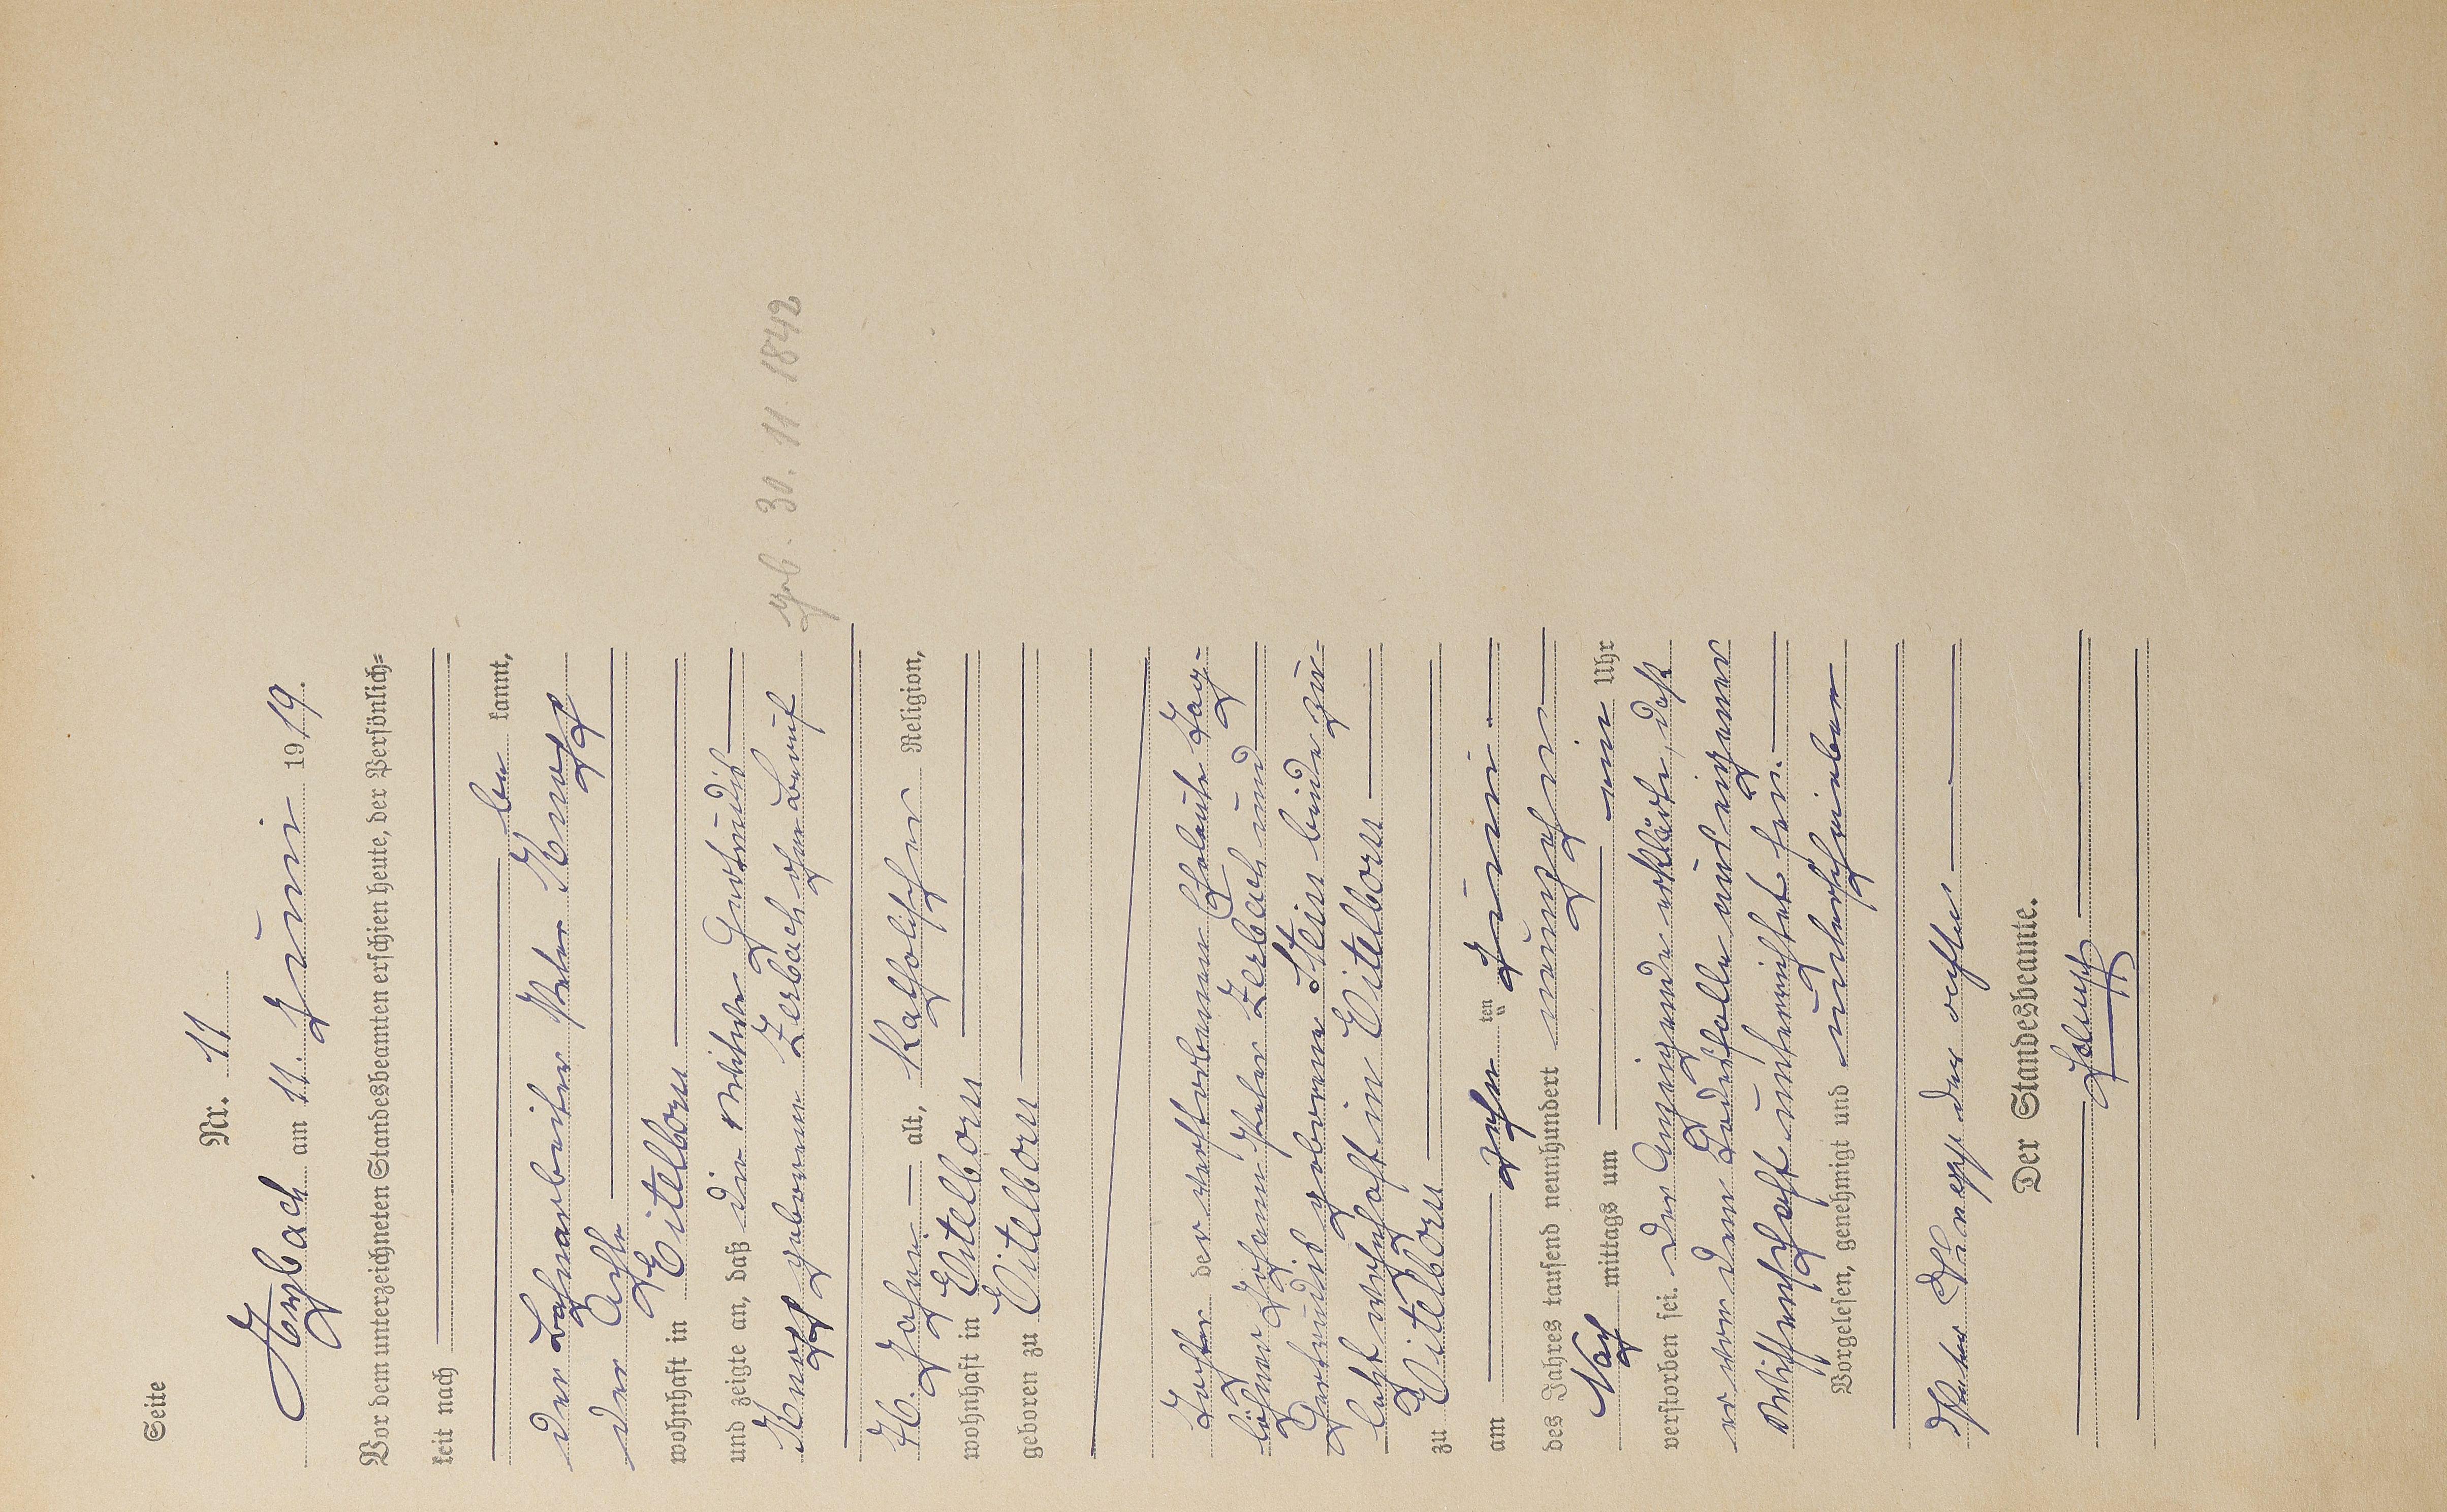 Seite
Nr. 11
Arzbach am 11. Juni 1919.
Vor dem unterzeichneten Standesbeamten erschien heute, der Persönlich=
keit nach
be kannt,
der Bahnarbeiter Peter Knopp
der Achte
wohnhaft in Eitelborn
und zeigte an, daß die Witwe Gertrud
Knopp geborene Zerbach ohne Beruf
geb. 30. 11 1842
76 Jahre alt, katholischer Religion,
wohnhaft in Eitelborn
geboren zu Eitelborn
Tochter der verstorbenen Eheleute Tag-
löhner Johann Peter Zerbach und
Gertrud geborene Klein beide zu-
letzt wohnhaft in Eitelborn
zu Eitelborn
am zehn ten Juni
des Jahres tausend neunhundert neunzehn
Nach mittags um ein Uhr
verstorben sei. Der Anzeigende erklärte, daß
er von dem Todesfalle aus eigener
Wissenschaft unterrichtet sei.
Vorgelesen, genehmigt und unterschrieben
Peter Knopp der achte
Der Standesbeamte.